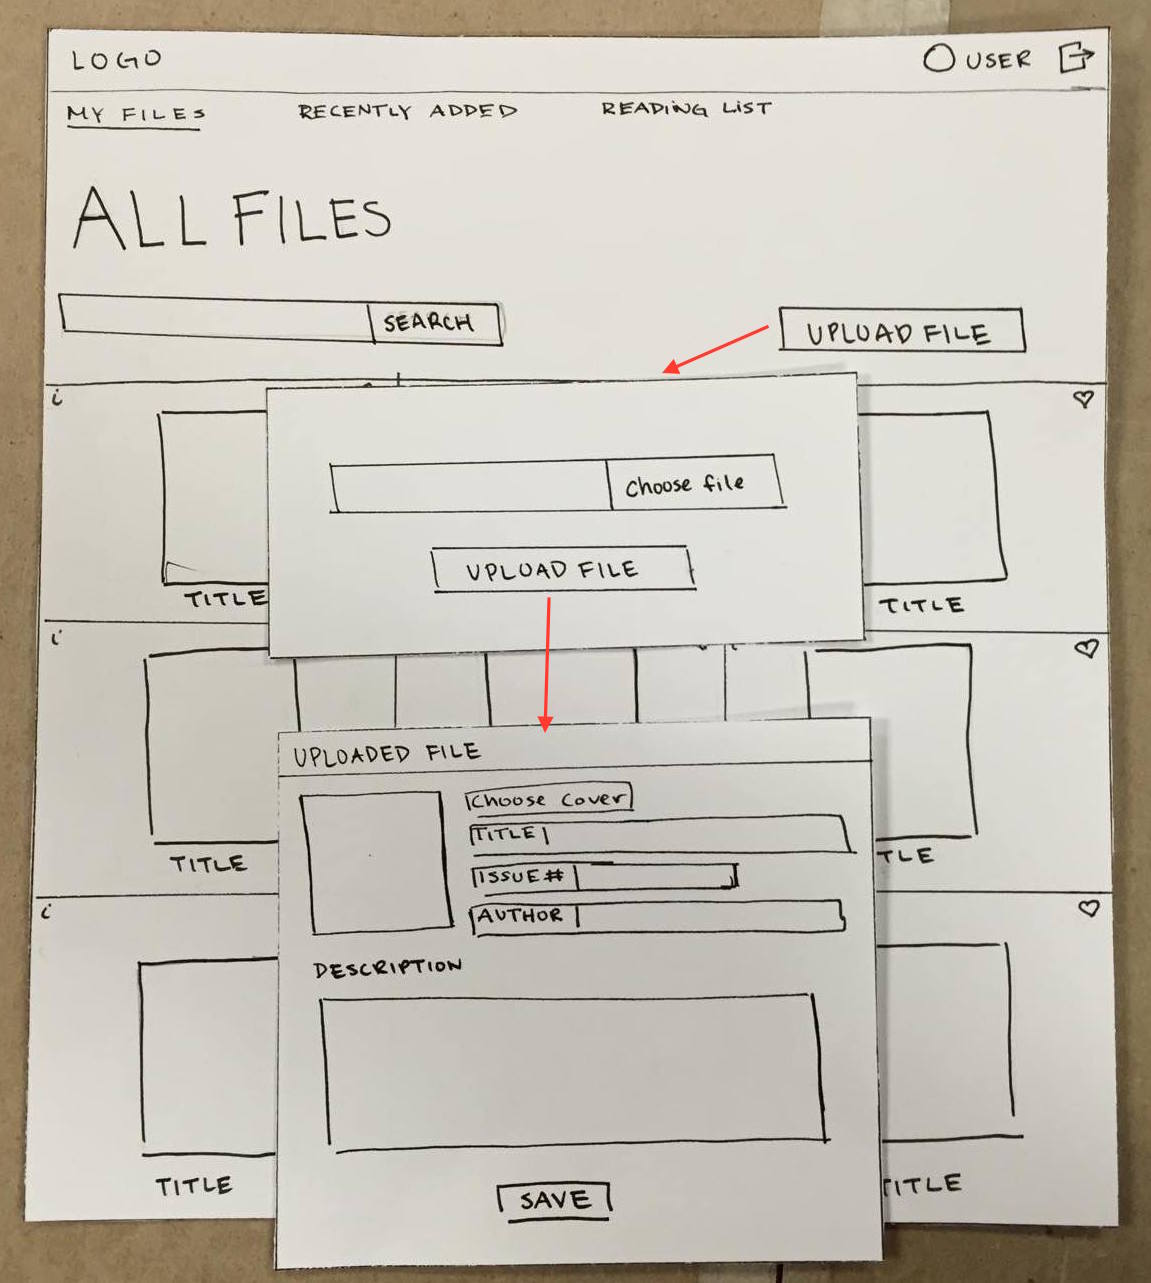 LOGO
USER
MY FILES RECENTLY ADDED READING LIST
ALL FILES
SEARCH
UPLOAD FILE
i
Choose file
UPLOAD FILE
TITLE
TITLE
i
UPLOADED FILE
Choose Cover
TITLE
ISSUE#
AUTHOR
TITLE
TLE
i
DESCRIPTION
SAVE
TITLE
TITLE